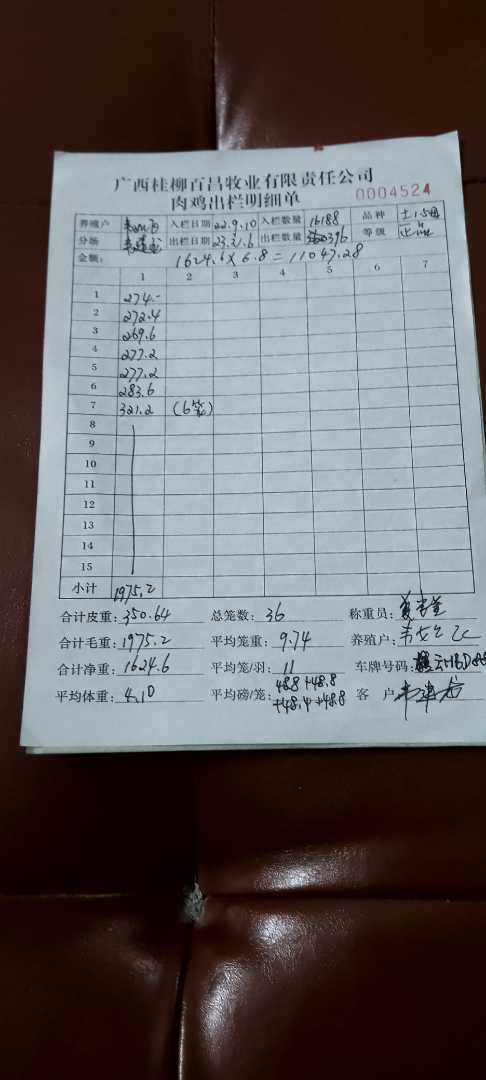 广西桂柳百昌牧业有限责任公司
肉鸡出栏明细单 0004524
养殖户 入栏日期 22.9.10 入栏数量 16188 品种 土1.5母
分场 出栏日期 23.1.6 出栏数量 396 等级 正品
金额: 1624.6×6.8=11047.28
1 2 3 4 5 6 7
1 274.-
2 272.4
3 269.6
4 277.2
5 277.2
6 283.6
7 321.2 (6笼)
8
9
10
11
12
13
14
15
小计 1975.2
合计皮重: 350.64 总笼数: 36 称重员:
合计毛重: 1975.2 平均笼重: 9.74 养殖户:
合计净重: 1624.6 平均笼/羽: 11 车牌号码:
平均体重: 4.10 平均磅/笼: 48.8+48.8 客 户
+48.4+48.8